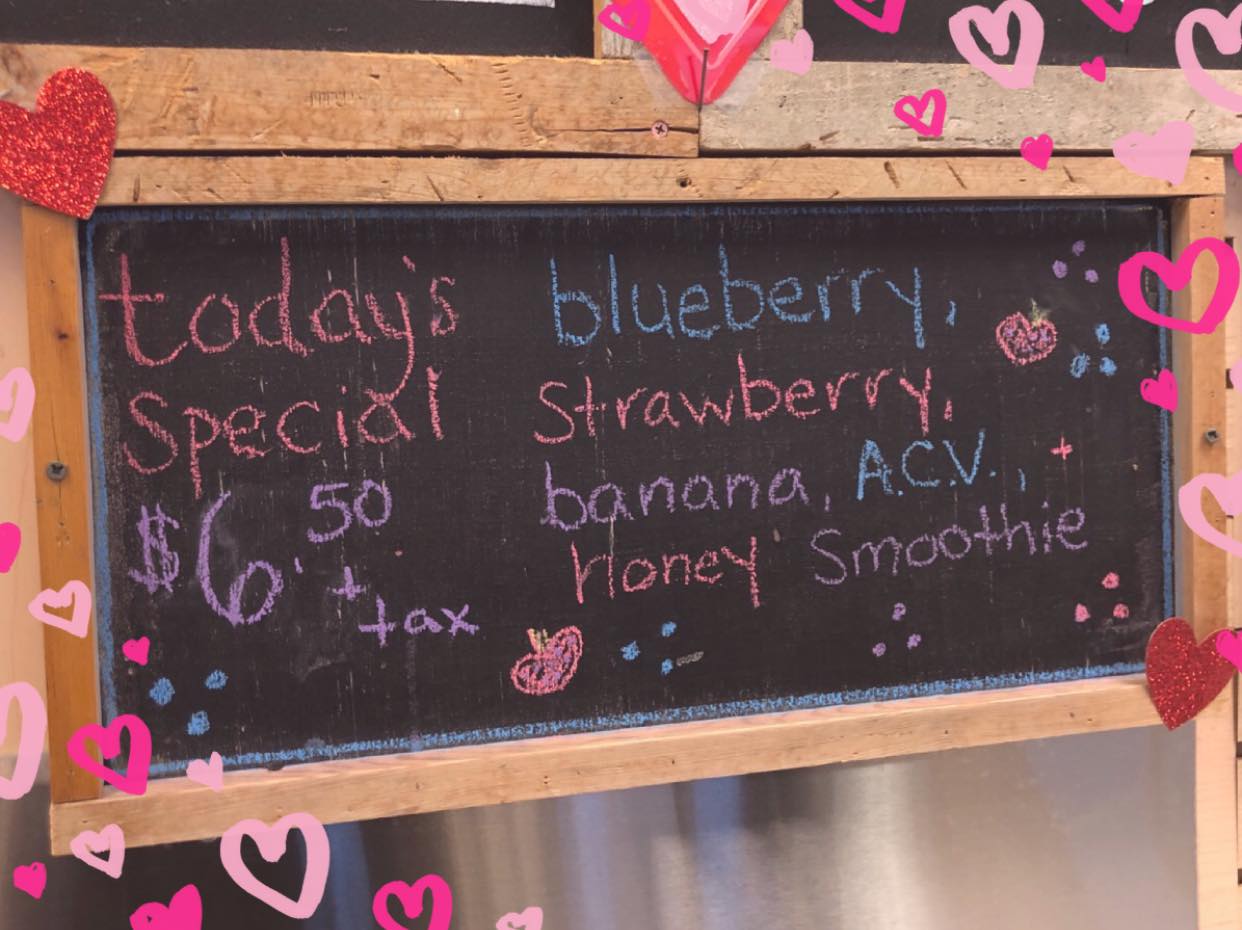 today's
special
$6.50
+ tax
blueberry,
strawberry,
banana, A.C.V.,
Honey Smoothie